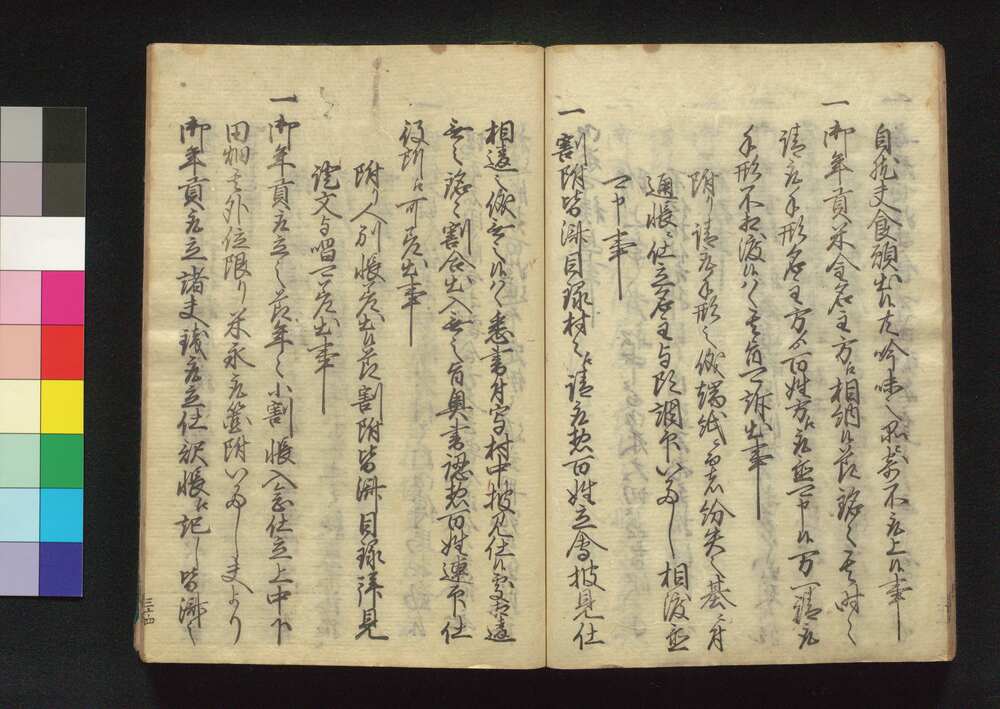 自然夫食願出候共吟味之品ニ寄不取上候事
一 御年貢米金名主方江相納候節銘々其時々
請取手形名主方ゟ百姓方江取置可申候万一請取
手形不相渡候ハヽ其旨可訴出事
附り請取手形之儀端紙ニ而者紛失之基ニ付
通帳ニ仕立名主与頭調印いたし相渡置
可申事
一 割附皆済目録村々江請取惣百姓立会披見仕
相違之儀無之候ハヽ書付写村中披見仕候処相違
無之銘々割合出入無之旨奥書認惣百姓連印仕
役所江可差出事
附り人別帳差出候節割附皆済目録拝見
証文与唱可差出事
一 御年貢取立之節年々小割帳入念仕立上中下
田畑其外位限り米永取箇附いたし夫より
御年貢取立諸夫銭取立仕訳帳ニ記し皆済之
三十四